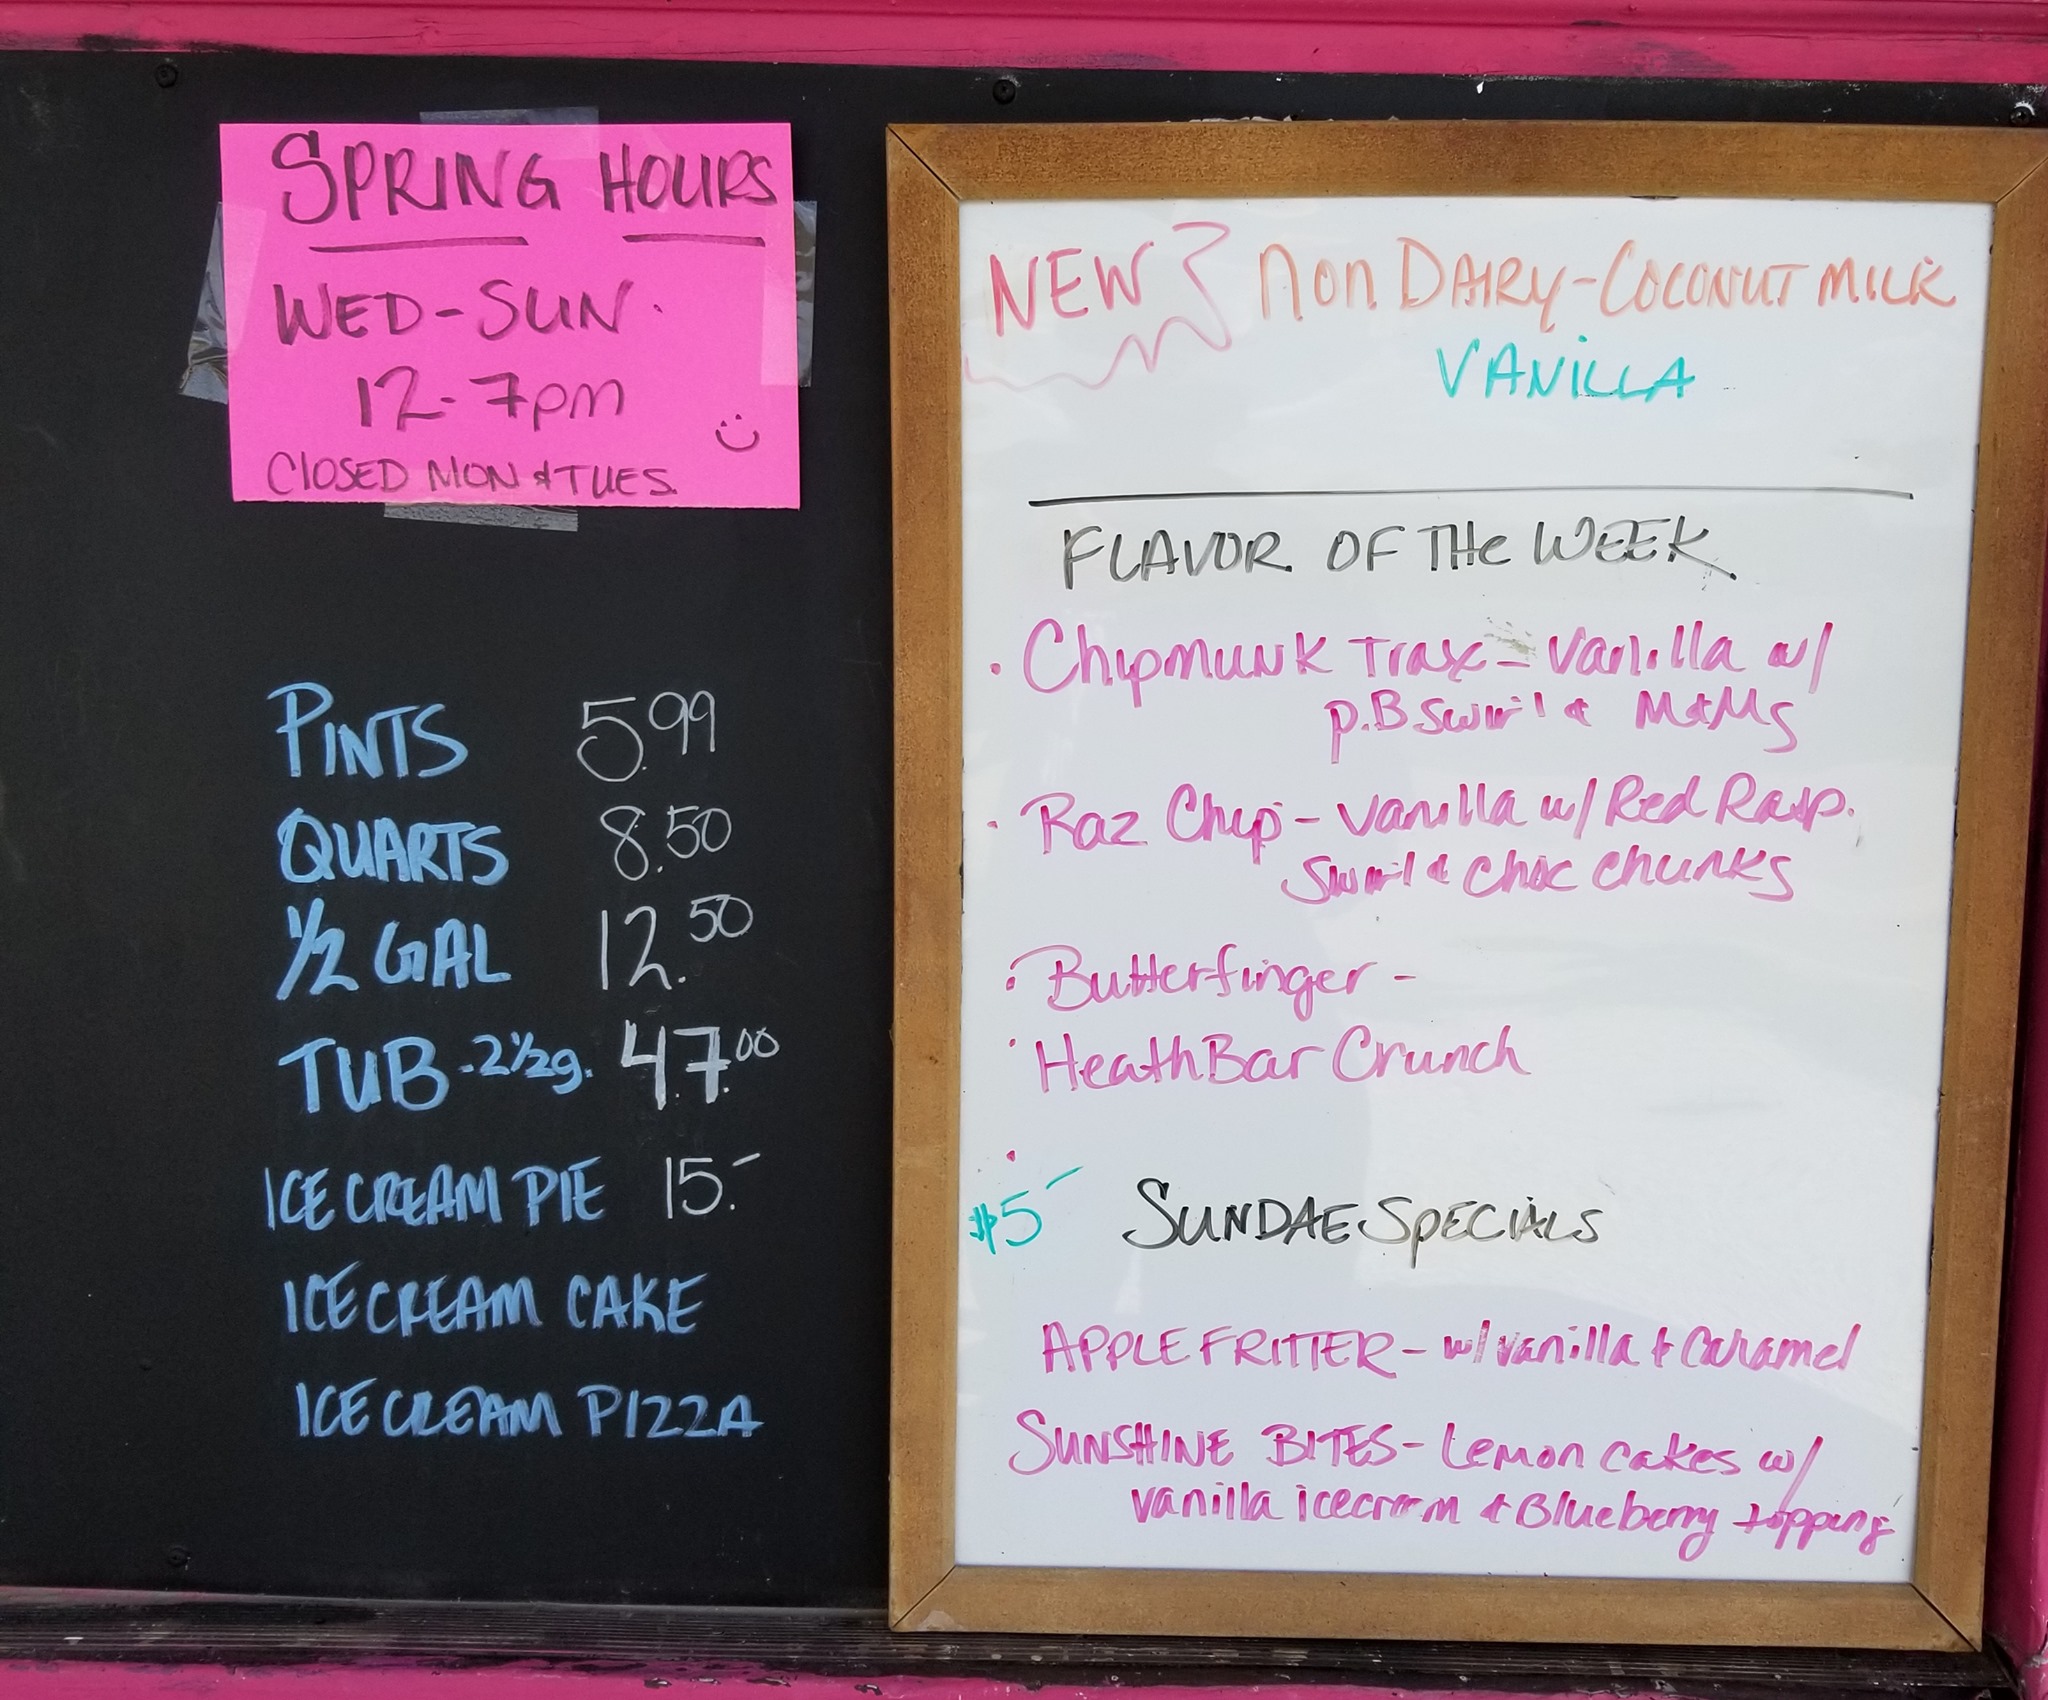 SPRING HOURS
WED-SUN.
12-7pm
CLOSED MON & TUES.
PINTS 5.99
QUARTS 8.50
1/2 GAL 12.50
TUB - 2 1/2 g. 47.00
ICE CREAM PIE 15.-
ICE CREAM CAKE
ICE CREAM PIZZA
NEW Non DAIRY-COCONUT MILK
VANILLA
FLAVOR OF THe WEEK
• Chipmunk Trax - Vanilla w/
P.B swirl & M&Ms
• Raz Chip - Vanilla w/ Red Rasp.
Swirl & Choc Chunks
• Butterfinger -
• Heath Bar Crunch
•
$5- SUNDAE SPECIALS
APPLE FRITTER - w/ vanilla & Caramel
SUNSHINE BITES - Lemon Cakes w/
vanilla icecream & Blueberry topping